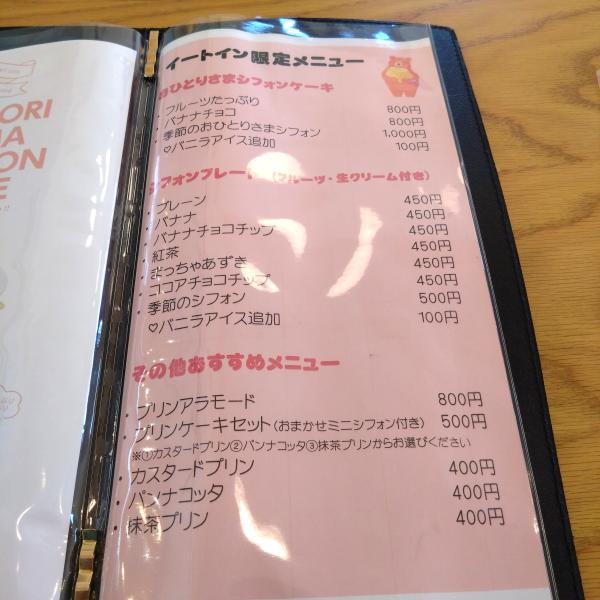 ORI
A
ON
E
イートイン限定メニュー
おひとりさまシフォンケーキ
・フルーツたっぷり 800円
・バナナチョコ 800円
・季節のおひとりさまシフォン 1,000円
♡バニラアイス追加 100円
シフォンプレート (フルーツ・生クリーム付き)
・プレーン 450円
・バナナ 450円
・バナナチョコチップ 450円
・紅茶 450円
・まっちゃあずき 450円
・ココアチョコチップ 450円
・季節のシフォン 500円
♡バニラアイス追加 100円
その他おすすめメニュー
・プリンアラモード 800円
・プリンケーキセット(おまかせミニシフォン付き) 500円
※①カスタードプリン②パンナコッタ③抹茶プリンからお選びください
・カスタードプリン 400円
・パンナコッタ 400円
・抹茶プリン 400円